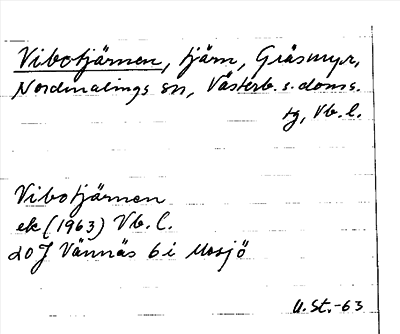 Vibotjärnen, tjärn, Gräsmyr,
Nordmalings sn, Västerb. s. doms.
tg, Vb. l.
Vibotjärnen
ek (1963) Vb. l.
20J Vännäs 6 i Mosjö
U. St. -63